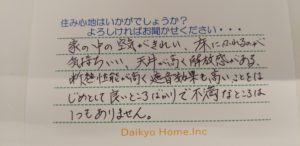 住み心地はいかがでしょうか？
よろしければお聞かせください・・・
家の中の空気がきれい、床にふれるのが
気持ちいい、天井が高く解放感がある、
断熱性能が高く遮音効果も高いことをは
じめとして良いところばかりで不満なところは
1つもありません。
Daikyo Home.Inc